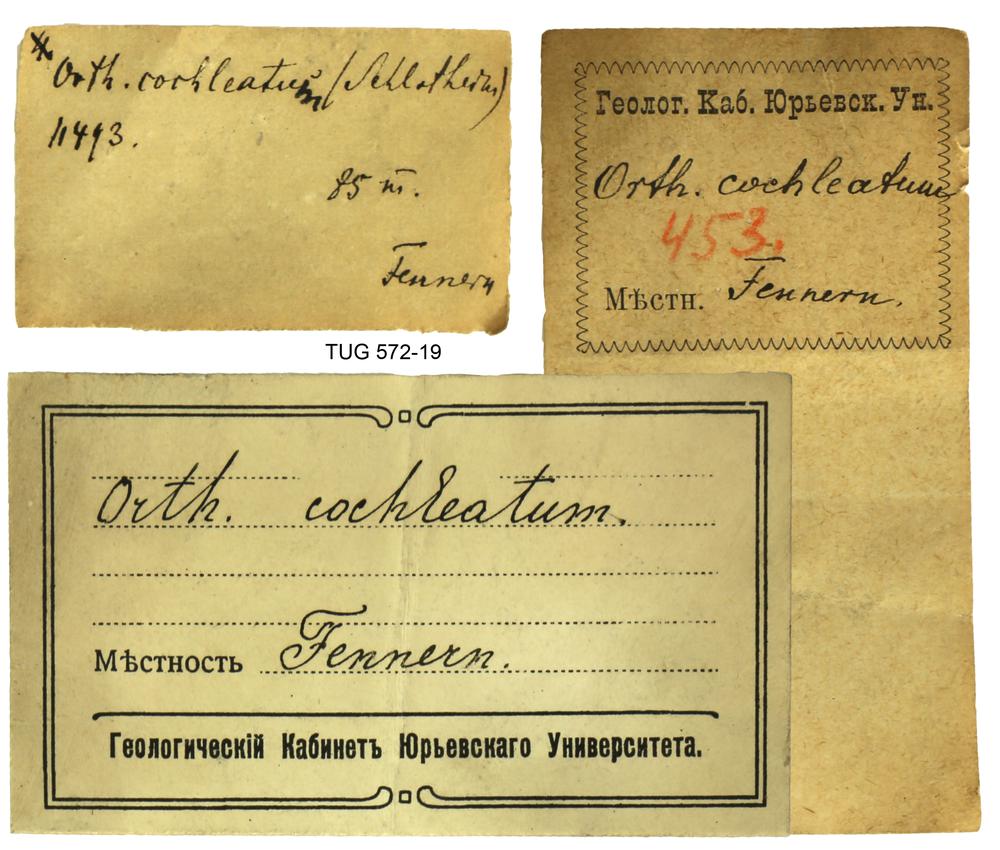 Orth. cochleatum (Schlotheim)
11493.
85 m.
Fennern
Геолог. Каб. Юрьевск. Ун.
Orth. cochleatum
453.
Мѣстн. Fennern.
TUG 572-19
Orth. cochleatum.
Мѣстность Fennern.
Геологическій Кабинетъ Юрьевскаго Университета.